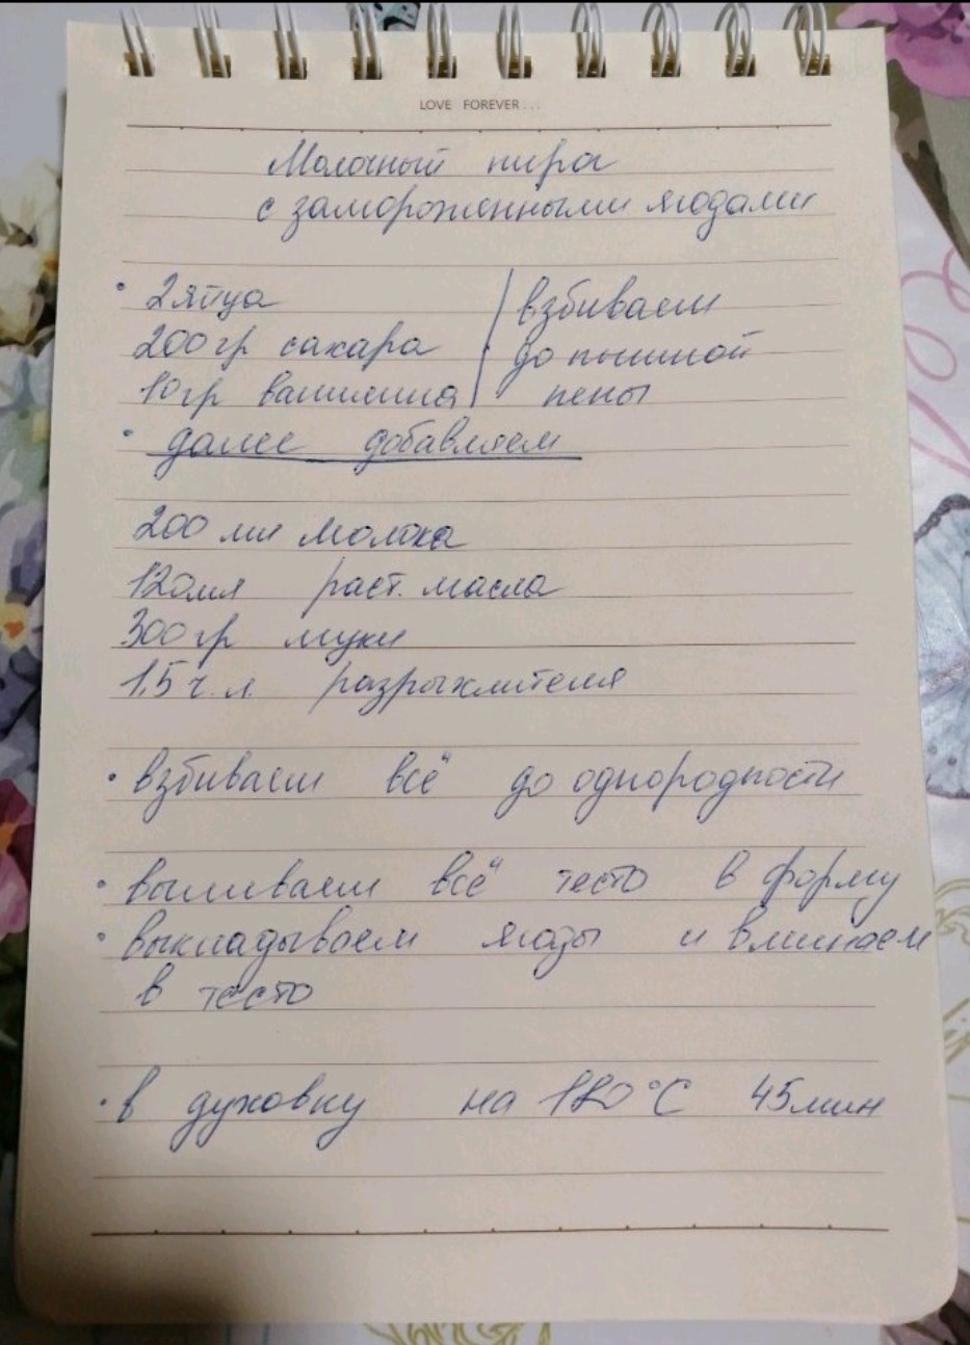 LOVE FOREVER...
Молочный пирог
с замороженными ягодами
• 2 яйца
200 гр сахара
10 гр ванилина
взбиваем
до пышной
пены
• далее добавляем
200 мл молока
120 мл раст. масла
300 гр муки
1.5 ч. л. разрыхлителя
• взбиваем всё до однородности
• выливаем всё тесто в форму
• выкладываем ягоды и вминаем
в тесто
• в духовку на 180°С 45 мин